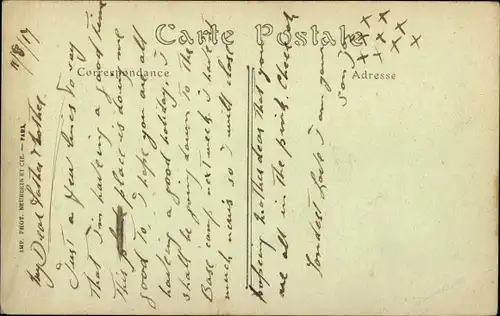 Carte Postale
Correspondance
Adresse
IMP. PHOT. NEURDEIN ET CIE. — PARIS
2/8/17
My Dear Father & Mother
Just a few lines to say
that I'm having a good time
This place is doing me
good to, I hope you are all
having a good holiday. I
shall be going down to the
Base camp next week. I have
much news so I will close
hopeing Mother dear that you
are all in the pink, Cheer oh
Fondest Love I am your
Son
x x x x x x x x x x x